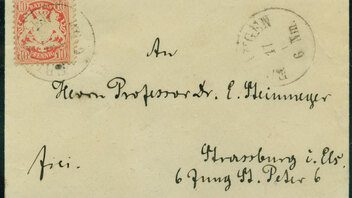 BAYERN
PFENNIG
An
Herrn Professor Dr. E. Steinmeyer
frei.
Strassburg i. Els.
6 Jung St. Peter 6